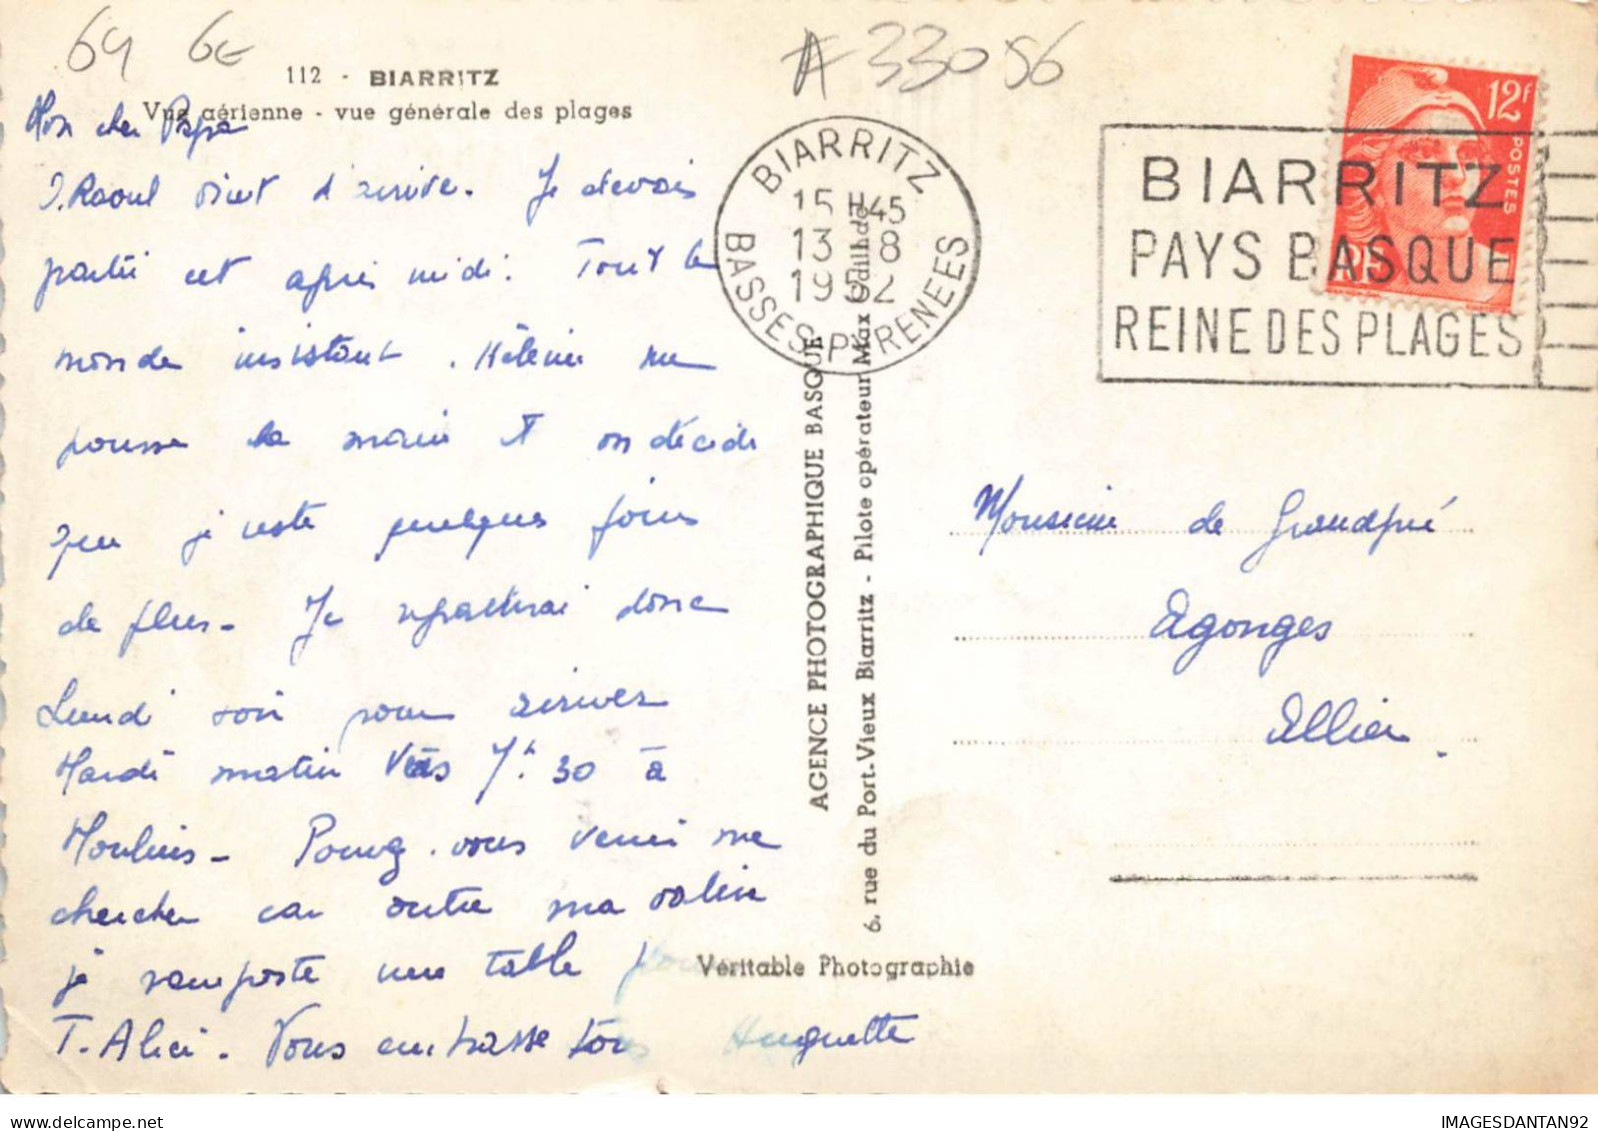 69 6E
A 33056
112 - BIARRITZ
Vue aérienne - vue générale des plages
Mon cher Papa
J. Raoul vient d'arriver. Je devais
partir cet après midi. Tout le
monde insistant. Hélène me
pousse la main et on décide
que je reste quelques jours
de plus - Je repartirai donc
Lundi soir pour arriver
Mardi matin vers 7h.30 à
Moulins - Pourrez-vous venir me
chercher car outre ma valise
je rapporte une table pour
T. Alice. Vous embrasse tous Huguette
BIARRITZ
15 H45
13 - 8
1952
BASSES-PYRENEES
12F
POSTES
RF
BIARRITZ
PAYS BASQUE
REINE DES PLAGES
AGENCE PHOTOGRAPHIQUE BASQUE
6, rue du Port-Vieux Biarritz - Pilote opérateur Max
Véritable Photographie
Monsieur de Grandpré
Agonges
Allier.
IMAGESDANTAN92